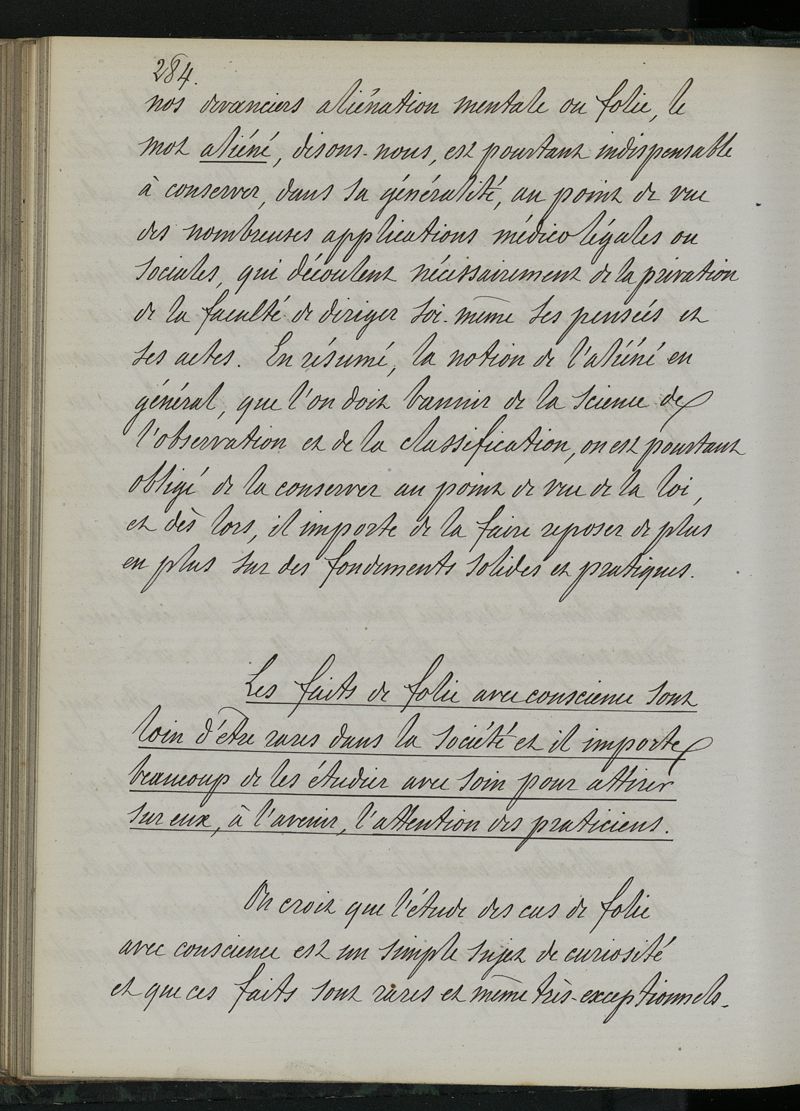 284.
nos devanciers aliénation mentale ou folie, le
mot aliéné, disons-nous, est pourtant indispensable
à conserver, dans sa généralité, au point de vue
des nombreuses applications médico légales ou
sociales, qui découlent nécessairement de la privation
de la faculté de diriger soi-même ses pensées et
ses actes. En résumé, la notion de l'aliéné en
général, que l'on doit bannir de la science de
l'observation et de la classification, on est pourtant
obligé de la conserver au point de vue de la loi,
et dès lors, il importe de la faire reposer de plus
en plus sur des fondements solides et pratiques.
Les faits de folie avec conscience sont
loin d'être rares dans la société et il importe
beaucoup de les étudier avec soin pour attirer
sur eux, à l'avenir, l'attention des praticiens.
On croit que l'étude des cas de folie
avec conscience est un simple sujet de curiosité
et que ces faits sont rares et même très-exceptionnels.